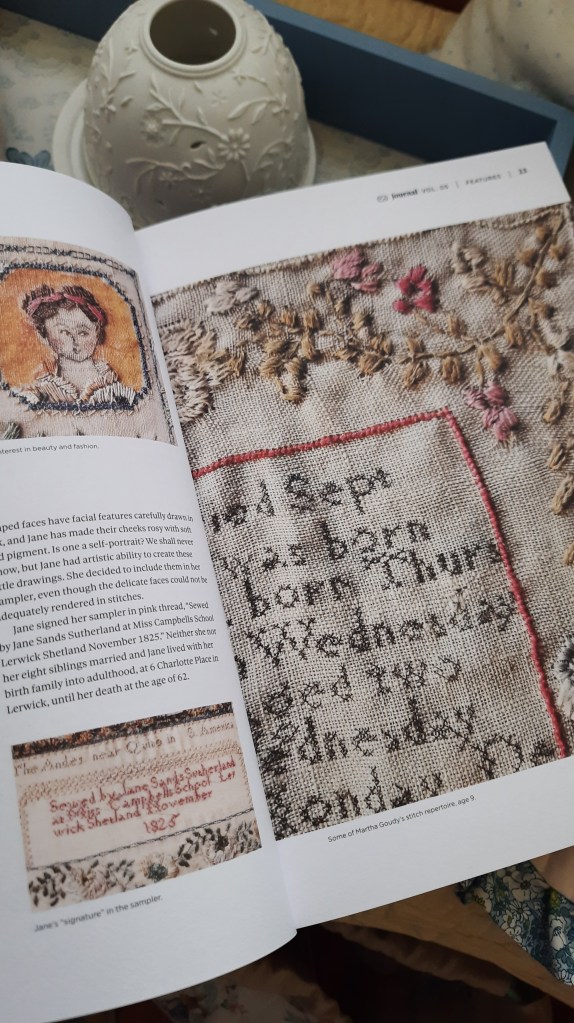 Journal VOL. 05 | FEATURES | 23
nterest in beauty and fashion.
aped faces have facial features carefully drawn in
k, and Jane has made their cheeks rosy with soft
d pigment. Is one a self-portrait? We shall never
now, but Jane had artistic ability to create these
tle drawings. She decided to include them in her
ampler, even though the delicate faces could not be
dequately rendered in stitches.
Jane signed her sampler in pink thread, "Sewed
by Jane Sands Sutherland at Miss Campbells School
Lerwick Shetland November 1825." Neither she nor
her eight siblings married and Jane lived with her
birth family into adulthood, at 6 Charlotte Place in
Lerwick, until her death at the age of 62.
The Andes near Quito in S America
Sewed by Jane Sands Sutherland
at Miss Campbells School Ler
wick Shetland November
1825
Jane's "signature" in the sampler.
ied Sept
was born
born Thurs
Wednesday
ded two
ednesday
onday
Some of Martha Goudy's stitch repertoire, age 9.